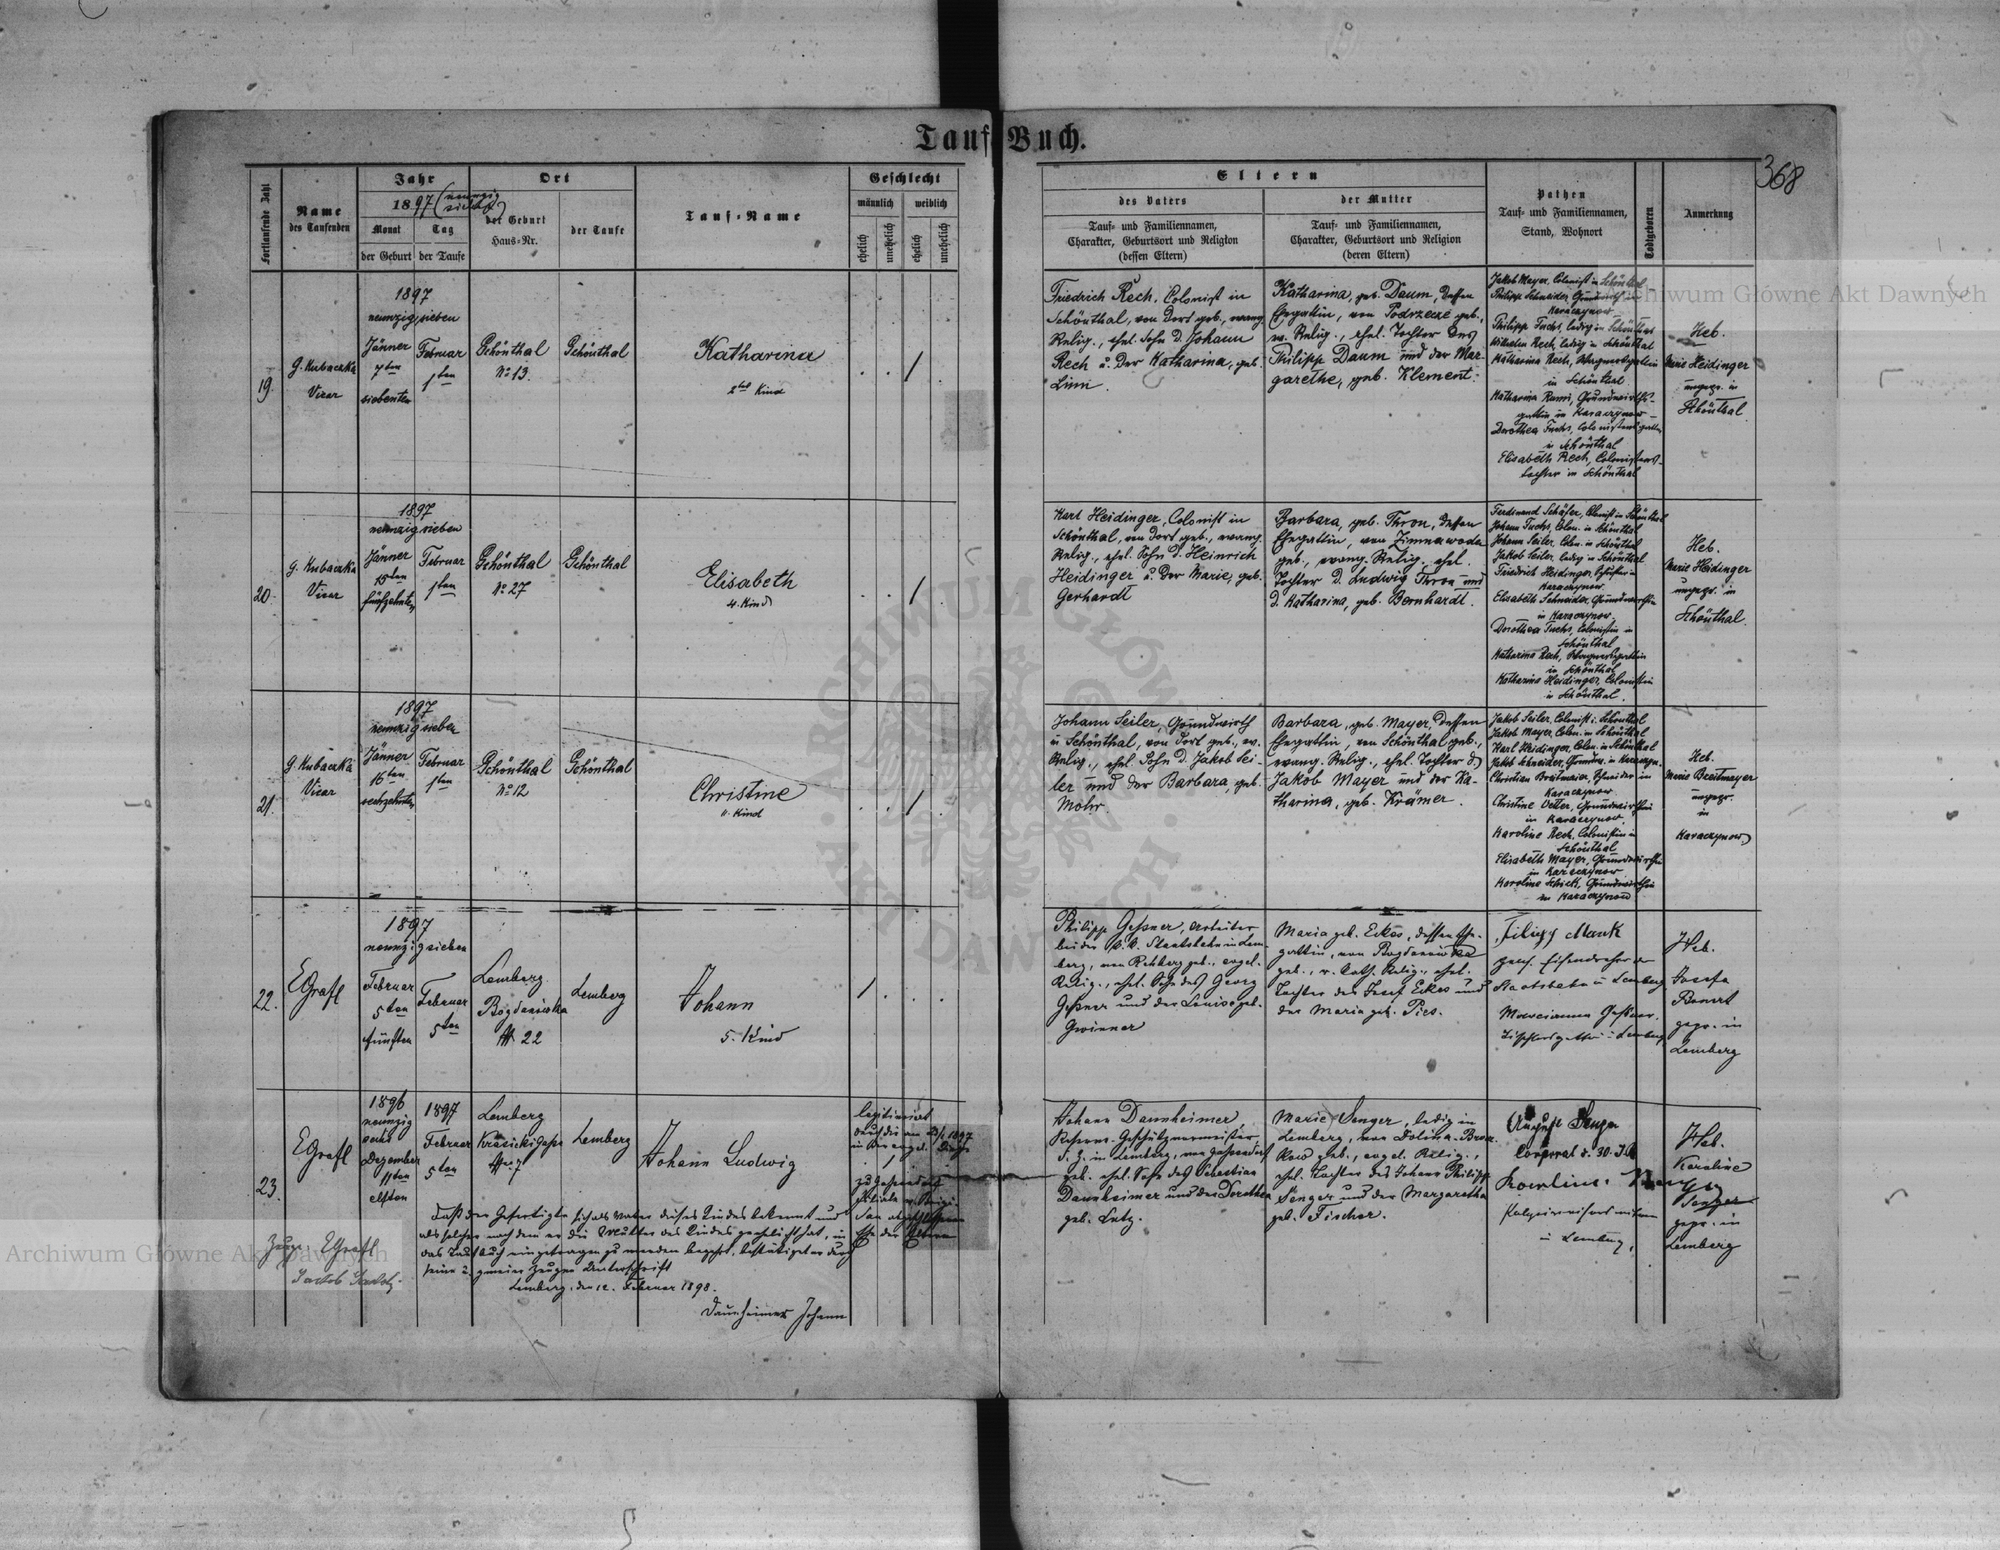 Tauf-Buch.
368
Fortlaufende Zahl
Name
des Taufenden
Jahr
1897 (neunzig
sieben)
Monat
der Geburt
Tag
der Taufe
Ort
der Geburt
Haus-Nr.
der Taufe
Tauf-Name
Geschlecht
männlich
weiblich
ehelich
unehelich
ehelich
unehelich
Eltern
des Vaters
Tauf- und Familiennamen,
Charakter, Geburtsort und Religion
(dessen Eltern)
der Mutter
Tauf- und Familiennamen,
Charakter, Geburtsort und Religion
(deren Eltern)
Pathen
Tauf- und Familiennamen,
Stand, Wohnort
Todtgeboren
Anmerkung
19.
G. Kubaczka
Vicar
1897
neunzig sieben
Jänner
7ten
siebenten
Februar
1ten
Schönthal
No 13.
Schönthal
Katharina
2tes Kind
Friedrich Rech, Colonist in
Schönthal, von dort geb., evang.
Relig., ehel. Sohn d. Johann
Rech u. der Katharina, geb.
Katharina, geb. Daum, dessen
Ehegattin, von Podrzecze geb.,
ev. Relig., ehel. Tochter des
Philipp Daum und der Mar-
garethe, geb. Klement.
Jakob Mayer, Colonist in Schönthal
Philipp Schneider, Grundwirth in
Karaczynow
Philipp Fuchs, ledig in Schönthal
Wilhelm Rech, ledig in Schönthal
Katharina Rech, Wagnersgattin
in Schönthal
Katharina Grundwirths-
gattin in Karaczynow
Dorothea Fuchs, Colonistensgattin
in Schönthal
Elisabeth Rech, Colonistens-
tochter in Schönthal
Heb.
Marie Heidinger
ungepr. in
Schönthal
20.
G. Kubaczka
Vicar
1897
neunzig sieben
Jänner
15ten
fünfzehnten
Februar
1ten
Schönthal
No 27
Schönthal
Elisabeth
4. Kind
Karl Heidinger, Colonist in
Schönthal, von dort geb., evang.
Relig., ehel. Sohn d. Heinrich
Heidinger u. der Marie, geb.
Gerhardt
Barbara, geb. Thron, dessen
Ehegattin, von Zimnawoda
geb., evang. Relig., ehel.
Tochter d. Ludwig Thron und
d. Katharina, geb. Bernhardt.
Ferdinand Schäfer, Colonist in Schönthal
Johann Fuchs, Colon. in Schönthal
Johann Seiler, Colon. in Schönthal
Jakob Seiler, ledig in Schönthal
Friedrich Heidinger, in
Karaczynow
Elisabeth Schneider, Grundwirthin
in Karaczynow
Dorothea Fuchs, Colonistin in
Schönthal
Katharina Rech, Wagnersgattin
in Schönthal
Katharina Heidinger, Colonistin
in Schönthal.
Heb.
Marie Heidinger
ungepr. in
Schönthal.
21.
G. Kubaczka
Vicar
1897
neunzig sieben
Jänner
16ten
sechzehnten
Februar
1ten
Schönthal
No 12
Schönthal
Christine
11. Kind
Johann Seiler, Grundwirth
in Schönthal, von dort geb., ev.
Relig., ehel. Sohn d. Jakob Sei-
ler und der Barbara, geb.
Mohr.
Barbara, geb. Mayer, dessen
Ehegattin, von Schönthal geb.,
evang. Relig., ehel. Tochter d.
Jakob Mayer und der Ka-
tharina, geb. Krämer.
Jakob Seiler, Colonist i. Schönthal
Jakob Mayer, Colon. in Schönthal
Karl Heidinger, Colon. in Schönthal
Jakob Schneider, Grundw. in Karaczyn.
Christian Breitmaier, Schneider in
Karaczynow
Christine Vetter, Grundwirthin
in Karaczynow.
Karoline Rech, Colonistin in
Schönthal
Elisabeth Mayer, Grundwirthin
in Karaczynow
Karoline Schick, Grundwirthin
in Karaczynow
Heb.
Marie Breitmayer
ungepr.
in
Karaczynow
22.
E Grafl
1897
neunzig sieben
Februar
5ten
fünften
Februar
5ten
Lemberg
Bogdanówka
No 22
Lemberg
Johann
5. Kind
Philipp Geßner, Arbeiter
bei der k. k. Staatsbahn in Lem-
berg, von Rehberg geb., evgel.
Relig., ehel. Sohn des Georg
Geßner und der Louise geb.
Gwinner
Maria geb. Eckes, dessen Ehe-
gattin, von Bogdanówka
geb., r. kath. Relig., ehel.
Tochter des Josef Eckes und
der Maria geb. Pies.
Filipp Mauk
Eisendreher der
Staatsbahn in Lemberg
Marianna Geßner,
Tischlersgattin in Lemberg
Heb.
Josefa
gepr. in
Lemberg
23.
E Grafl
1896
neunzig
sechs
Dezember
11ten
elften
1897
Februar
5ten
Lemberg
Krasickigasse
No 7
Lemberg
Johann Ludwig
legitimirt
durch die am 23/5 1897
in der evangel.
zu Gassendorf
Filiale v.
abgeschlossene
Ehe der Eltern
Johann Dannheimer,
Reserve-Geschützvormeister,
d. Z. in Lemberg, von Gassendorf
geb. ehel. Sohn des Sebastian
Dannheimer und der Dorothea
geb. Lutz.
Marie Senger, ledig in
Lemberg, von Dolina-Brosz-
kow geb., evgel. Relig.,
ehel. Tochter des Johann Philipp
Senger und der Margaretha
geb. Fischer.
August Senger
Corporal d. 30. I.R.
Karoline
in Lemberg,
Heb.
Karoline
Senger
gepr. in
Lemberg
Daß der Gefertigte sich als Vater dieses Kindes bekennt und
als solcher nach dem er die Mutter des Kindes geehelicht hat, in
das Taufbuch eingetragen zu werden begehrt, bestätiget er durch
seine u. zweier Zeugen Unterschrift
Lemberg, den 12. Februar 1898.
Dannheimer Johann
Zeuge: E Grafl
Jacob
Archiwum Główne Akt Dawnych
Archiwum Główne Akt Dawnych
ARCHIWUM GŁÓWNE AKT DAWNYCH